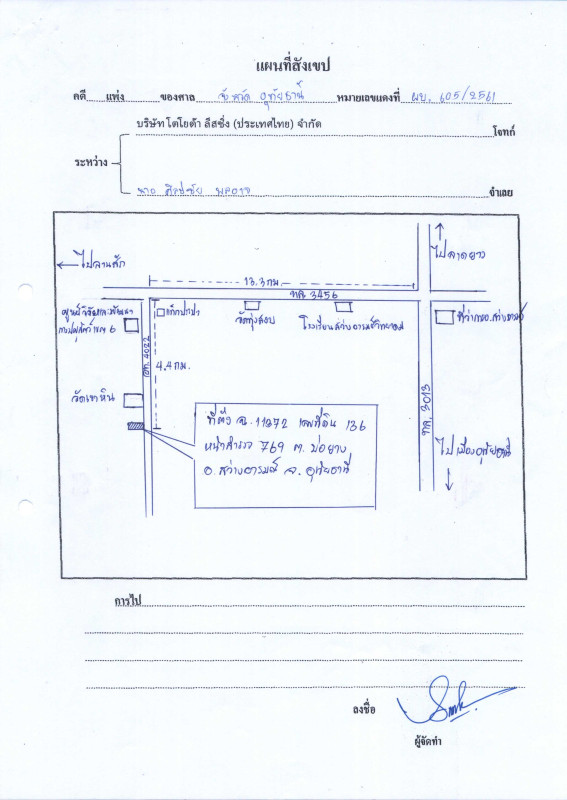 แผนที่สังเขป
คดี แพ่ง ของศาล จังหวัด อุทัยธานี หมายเลขแดงที่ ผบ. 605/2561
บริษัท โตโยต้า ลีสซิ่ง (ประเทศไทย) จำกัด โจทก์
ระหว่าง
นาย จำเลย
ไปลาดยาว
ไปลานสัก
13.3 กม.
ทล. 3456
แท็กประปา
วัดทุ่งสอบ
โรงเรียนสว่างอารมณ์วิทยาคม
ที่ว่าการอ.สว่างอารมณ์
4022
4.4 กม.
วัดเขาหิน
ทล. 3013
ที่ตั้ง ฉ. 11372 เลขที่ดิน 136
หน้าสำรวจ 769 ต. บ่อยาง
อ. สว่างอารมณ์ จ. อุทัยธานี
ไปเมืองอุทัยธานี
การไป
ลงชื่อ
ผู้จัดทำ